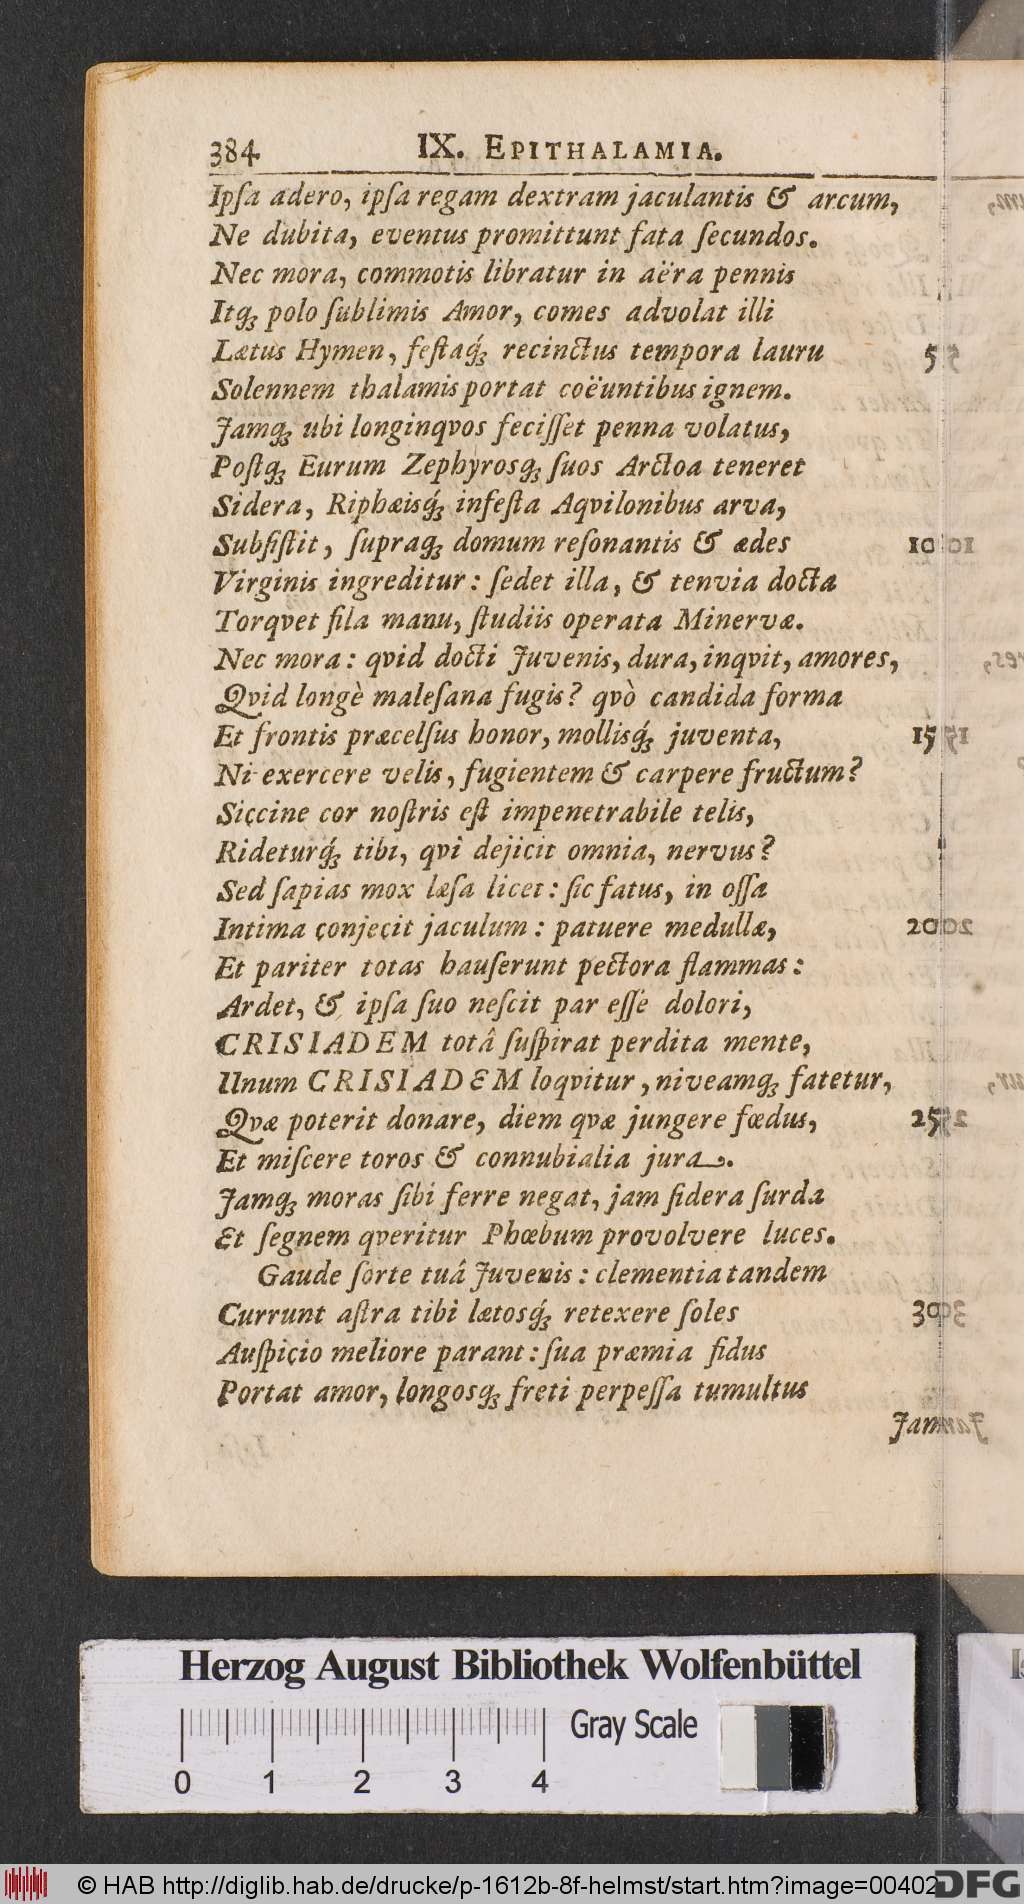 384 IX. EPITHALAMIA.
Ipſa adero, ipſa regam dextram jaculantis & arcum,
Ne dubita, eventus promittunt fata ſecundos.
Nec mora, commotis libratur in aëra pennis
Itq́ꝫ polo ſublimis Amor, comes advolat illi
Lætus Hymen, feſtaq́ꝫ recinctus tempora lauru 5
Solennem thalamis portat coëuntibus ignem.
Jamqꝫ ubi longinqvos feciſſet penna volatus,
Poſtqꝫ Eurum Zephyrosqꝫ ſuos Arctoa teneret
Sidera, Riphæisq́ꝫ infeſta Aqvilonibus arva,
Subſiſtit, ſupraqꝫ domum reſonantis & ædes 10
Virginis ingreditur: ſedet illa, & tenvia docta
Torqvet fila manu, ſtudiis operata Minervæ.
Nec mora: qvid docti Juvenis, dura, inqvit, amores,
Qvid longè maleſana fugis? qvò candida forma
Et frontis præcelſus honor, mollisq́ꝫ juventa, 15
Ni exercere velis, fugientem & carpere fructum?
Siccine cor noſtris eſt impenetrabile telis,
Rideturq́ꝫ tibi, qvi dejicit omnia, nervus?
Sed ſapias mox læſa licet: ſic fatus, in oſſa
Intima conjecit jaculum: patuere medullæ, 20
Et pariter totas hauſerunt pectora flammas:
Ardet, & ipſa ſuo neſcit par eſſe dolori,
CRISIADEM totâ ſuſpirat perdita mente,
Unum CRISIADEM loqvitur, niveamqꝫ fatetur,
Qvæ poterit donare, diem qvæ jungere fœdus, 25
Et miſcere toros & connubialia jura.
Jamqꝫ moras ſibi ferre negat, jam ſidera ſurda
Et ſegnem qveritur Phœbum provolvere luces.
Gaude ſorte tuâ Juvenis: clementia tandem
Currunt aſtra tibi lætosq́ꝫ retexere ſoles 30
Auſpicio meliore parant: ſua præmia fidus
Portat amor, longosqꝫ freti perpeſſa tumultus
Jam
Herzog August Bibliothek Wolfenbüttel
Gray Scale
0 1 2 3 4
© HAB http://diglib.hab.de/drucke/p-1612b-8f-helmst/start.htm?image=00402
DFG